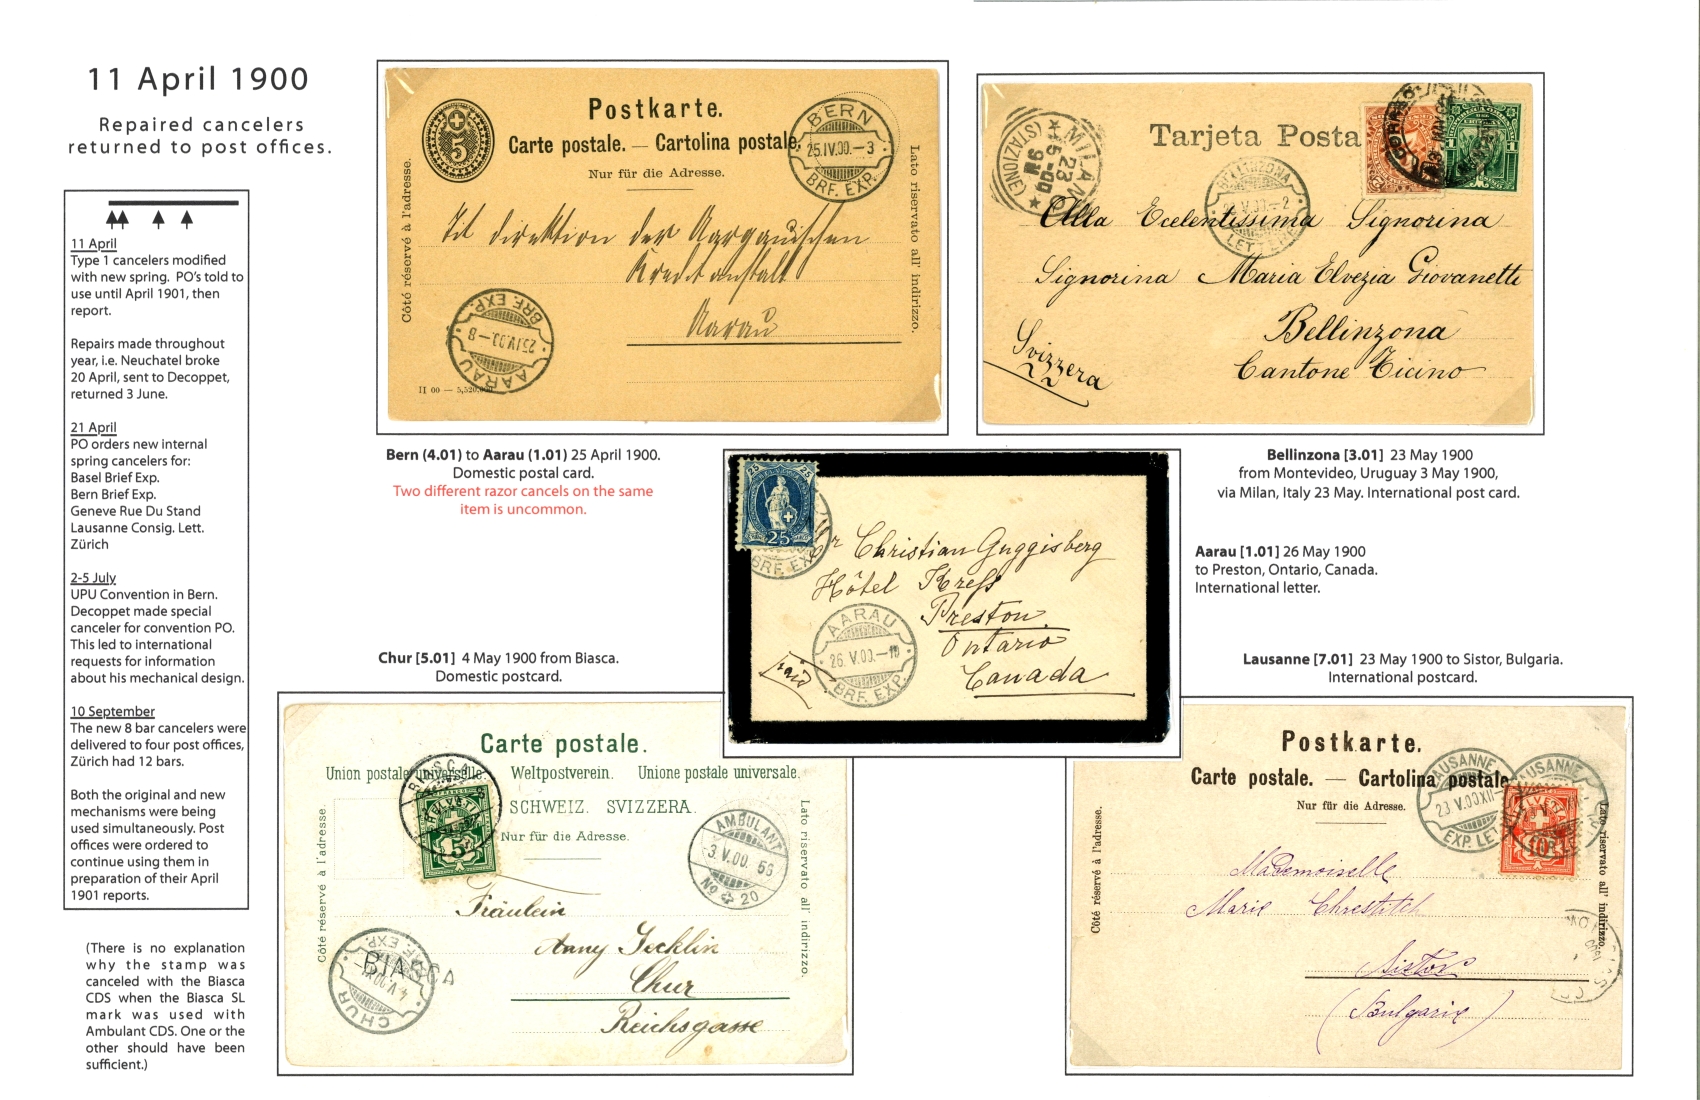 11 April 1900
Repaired cancelers
returned to post offices.
11 April
Type 1 cancelers modified
with new spring. PO's told to
use until April 1901, then
report.
Repairs made throughout
year, i.e. Neuchatel broke
20 April, sent to Decoppet,
returned 3 June.
21 April
PO orders new internal
spring cancelers for:
Basel Brief Exp.
Bern Brief Exp.
Geneve Rue Du Stand
Lausanne Consig. Lett.
Zürich
2-5 July
UPU Convention in Bern.
Decoppet made special
canceler for convention PO.
This led to international
requests for information
about his mechanical design.
10 September
The new 8 bar cancelers were
delivered to four post offices,
Zürich had 12 bars.
Both the original and new
mechanisms were being
used simultaneously. Post
offices were ordered to
continue using them in
preparation of their April
1901 reports.
(There is no explanation
why the stamp was
canceled with the Biasca
CDS when the Biasca SL
mark was used with
Ambulant CDS. One or the
other should have been
sufficient.)
Postkarte.
Carte postale. — Cartolina postale.
Nur für die Adresse.
Côté réservé à l'adresse.
Lato riservato all' indirizzo.
5
BERN
25.IV.00.–3
BRF. EXP.
Tit Direktion der Aargauischen
Kreditanstalt
Aarau
AARAU
25.IV.00.–8
BRF. EXP.
II 00 — 5,520,000
Bern (4.01) to Aarau (1.01) 25 April 1900.
Domestic postal card.
Two different razor cancels on the same
item is uncommon.
Tarjeta Posta
MILANO
23
5-00
9M
(STAZIONE)
BELLINZONA
23.V.00.–2
LETTERE
CORREOS
1
Alla Ecelentissima Signorina
Signorina Maria Elvezia Giovanetti
Bellinzona
Cantone Ticino
Svizzera
Bellinzona [3.01] 23 May 1900
from Montevideo, Uruguay 3 May 1900,
via Milan, Italy 23 May. International post card.
25 25
25
BRF. EXP.
Christian Guggisberg
Hôtel Kress
Preston
Ontario
Canada
AARAU
26.V.00.–10
BRF. EXP.
Aarau [1.01] 26 May 1900
to Preston, Ontario, Canada.
International letter.
Chur [5.01] 4 May 1900 from Biasca.
Domestic postcard.
Carte postale.
Union postale universelle. Weltpostverein. Unione postale universale.
SCHWEIZ. SVIZZERA.
Nur für die Adresse.
Côté réservé à l'adresse.
Lato riservato all' indirizzo.
BIASCA
FRANCO
HELVETIA
5
AMBULANT
3.V.00. 56
No 20
Fräulein
Anny Jecklin
Chur
Reichsgasse
BIASCA
CHUR
4.V.00
BRF. EXP.
Lausanne [7.01] 23 May 1900 to Sistor, Bulgaria.
International postcard.
Postkarte.
Carte postale. — Cartolina postale
Nur für die Adresse.
Côté réservé à l'adresse.
Lato riservato all' indirizzo.
LAUSANNE
23.V.00.XII
EXP. LETT.
LAUSANNE
HELVETIA
10
Mademoiselle
Marie Chrestitch
Sistov
(Bulgarie)